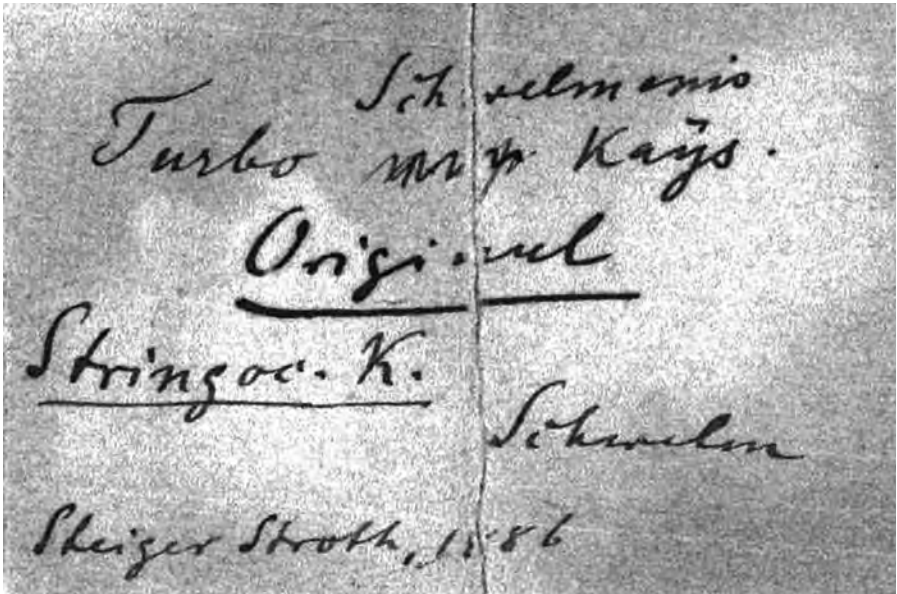 Schwelmenis
Turbo Kaÿs.
Original
Stringoc. K.
Schwelm
Steiger Stroth, 1886